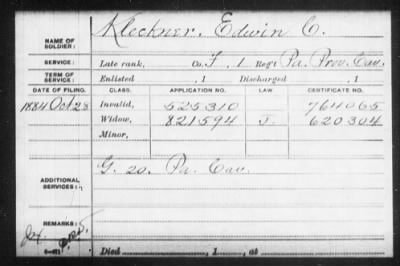 NAME OF SOLDIER: Kleckner, Edwin C.
SERVICE: Late rank, Co. F, 1 Reg't Pa. Prov. Cav.
TERM OF SERVICE: Enlisted , 1 Discharged , 1
DATE OF FILING. CLASS. APPLICATION NO. LAW. CERTIFICATE NO.
1884 Oct 28 Invalid, 525310 764065
Widow, 821594 J. 620304
Minor,
ADDITIONAL SERVICES: G. 20. Pa. Cav.
REMARKS:
Died , 1 , at